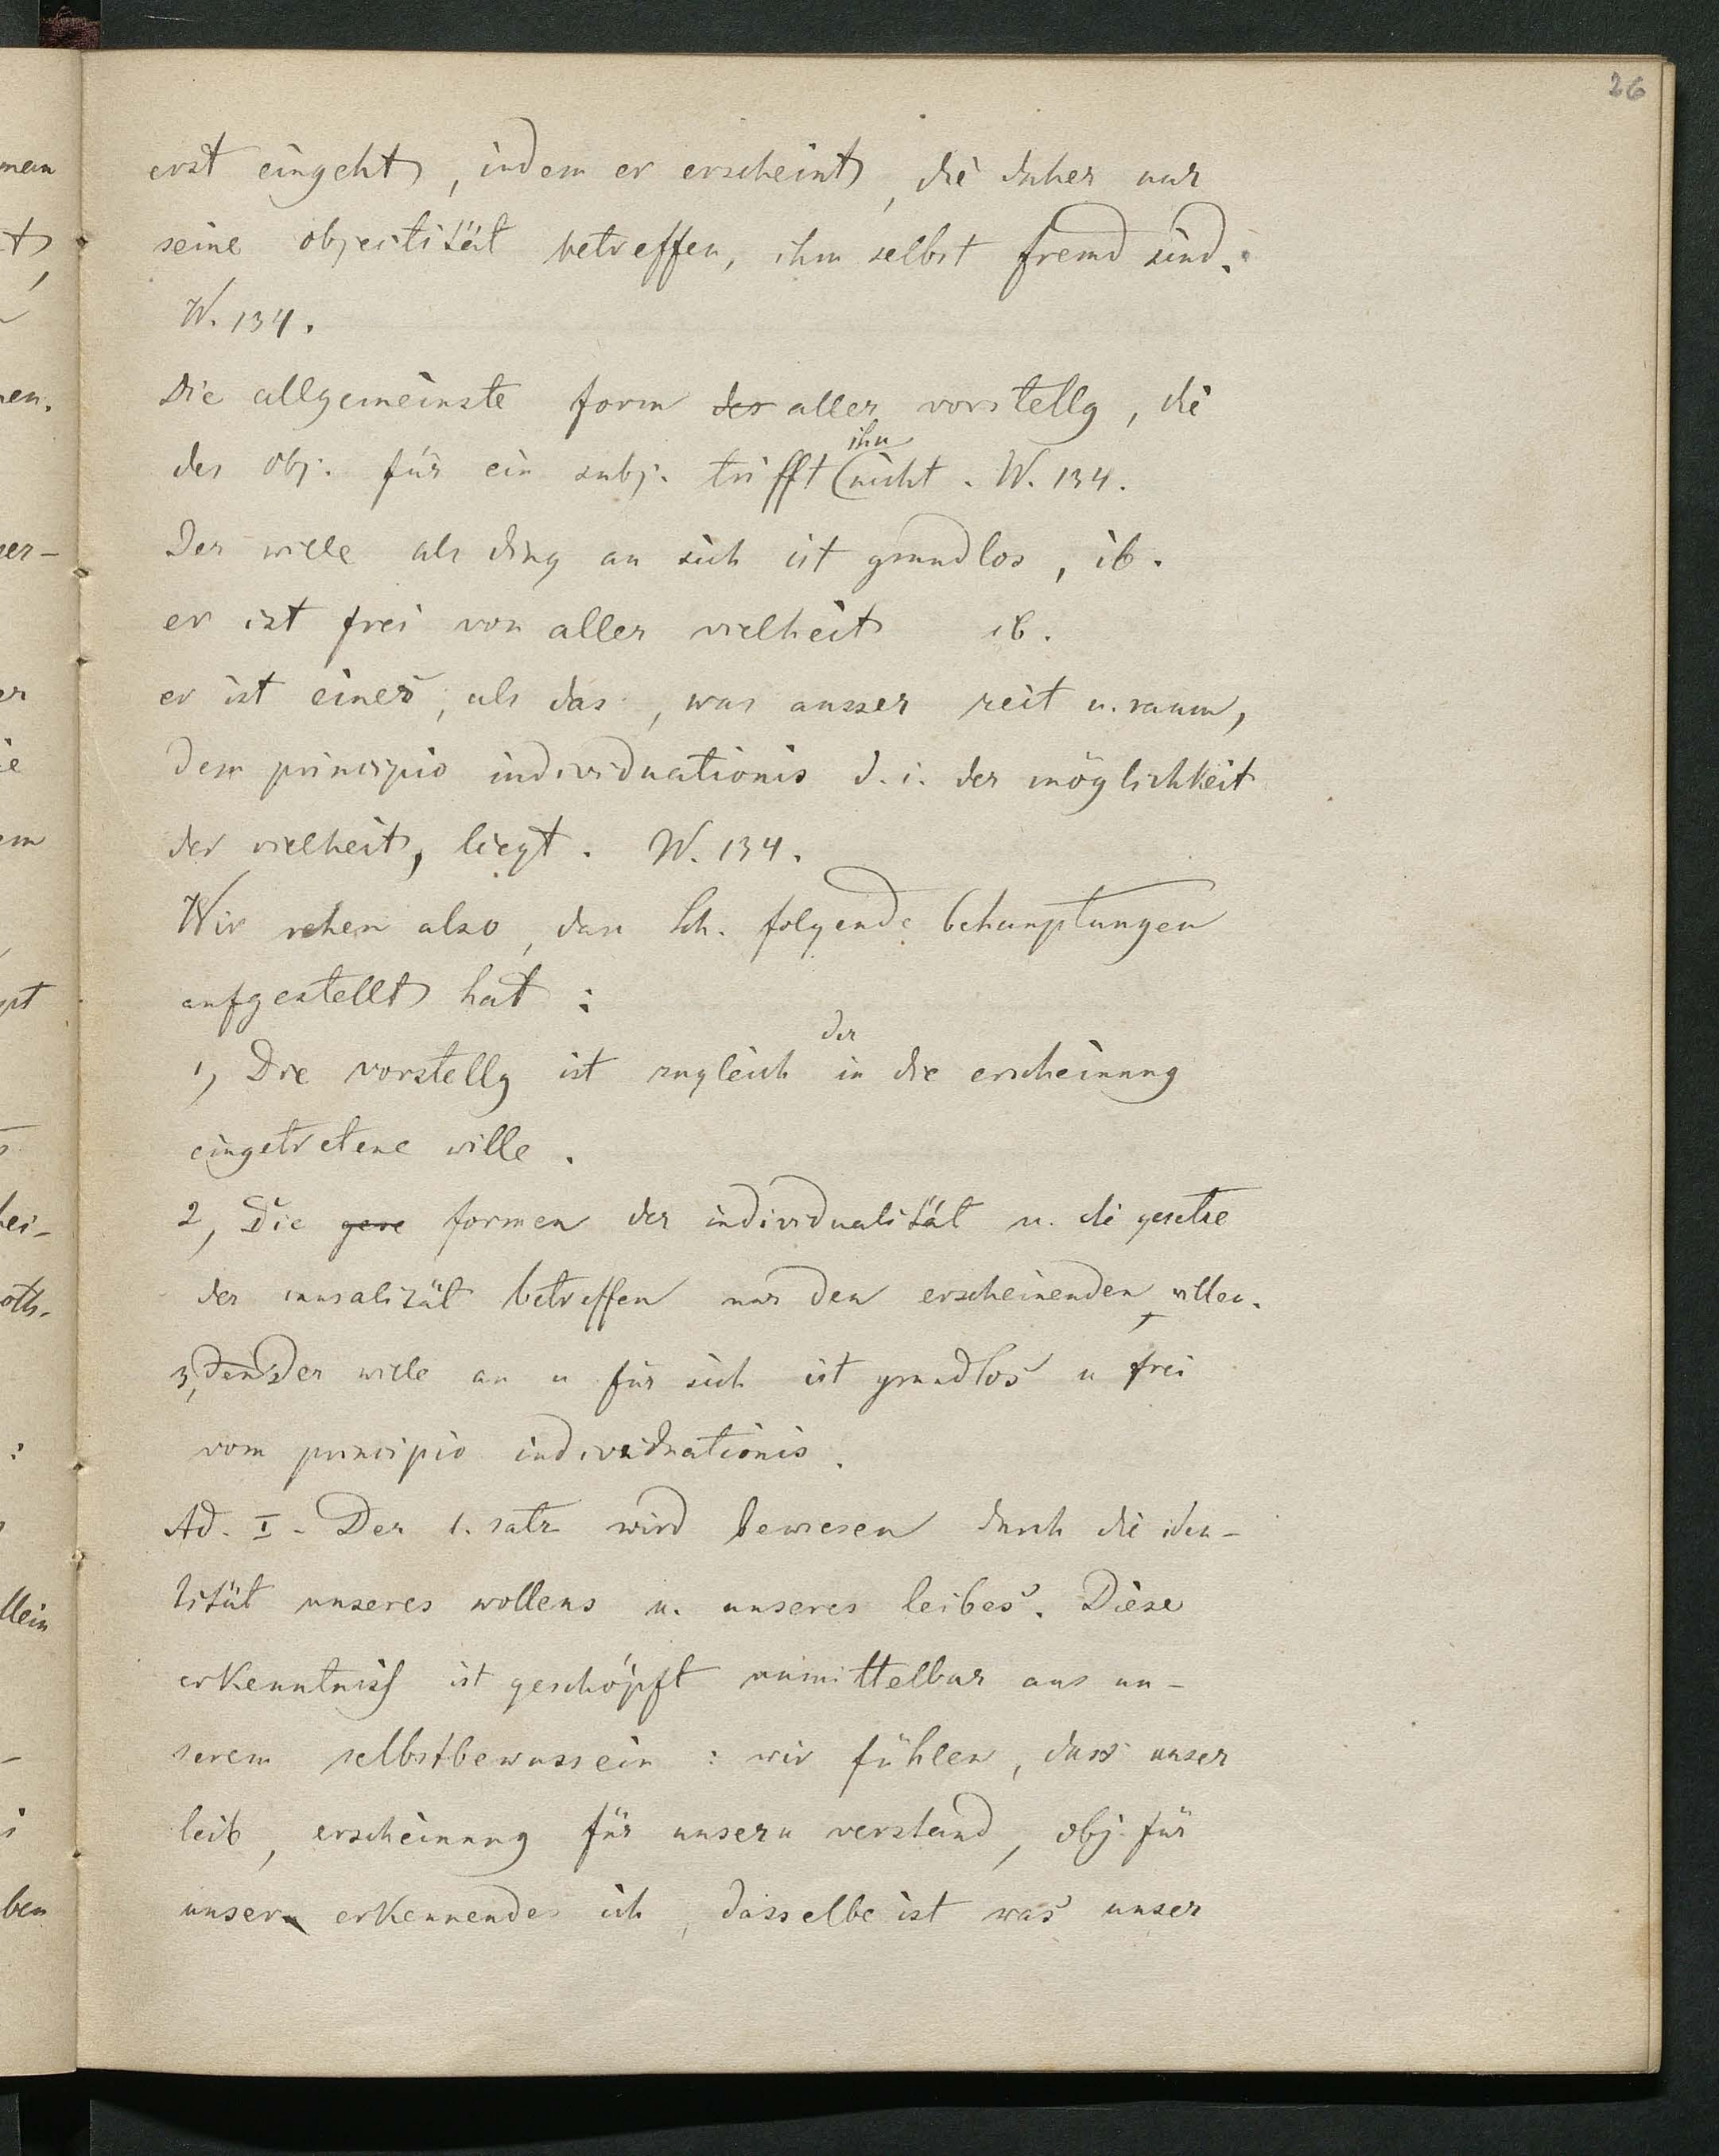 26
erst eingeht, indem er erscheint, die daher nur
seine objectität betreffen, ihm selbst fremd sind.
W. 134.
Die allgemeinste form der aller vorstellg, die
des obj. für ein subj. trifft ihn nicht. W. 134.
Der wille als ding an sich ist grundlos, ib.
er ist frei von aller vielheit ib.
er ist eines, als das, was ausser zeit u. raum,
dem principio individuationis d. i. der möglichkeit
der vielheit, liegt. W. 134.
Wir sehen also, dass Sch. folgende behauptungen
aufgestellt hat:
1, Die vorstellg ist zugleich der in die erscheinung
eingetretene wille.
2, Die gese formen der individualität u. die gesetze
der causalität betreffen nur den erscheinenden willen.
3, den Der wille an u für sich ist grundlos u frei
vom principio individuationis.
Ad. I. Der 1. satz wird bewiesen durch die iden-
tität unseres wollens u. unseres leibes. Diese
erkenntniss ist geschöpft unmittelbar aus un-
serem selbstbewussein: wir fühlen, dass unser
leib, erscheinung für unsern verstand, obj. für
unser erkennendes ich, dasselbe ist was unser